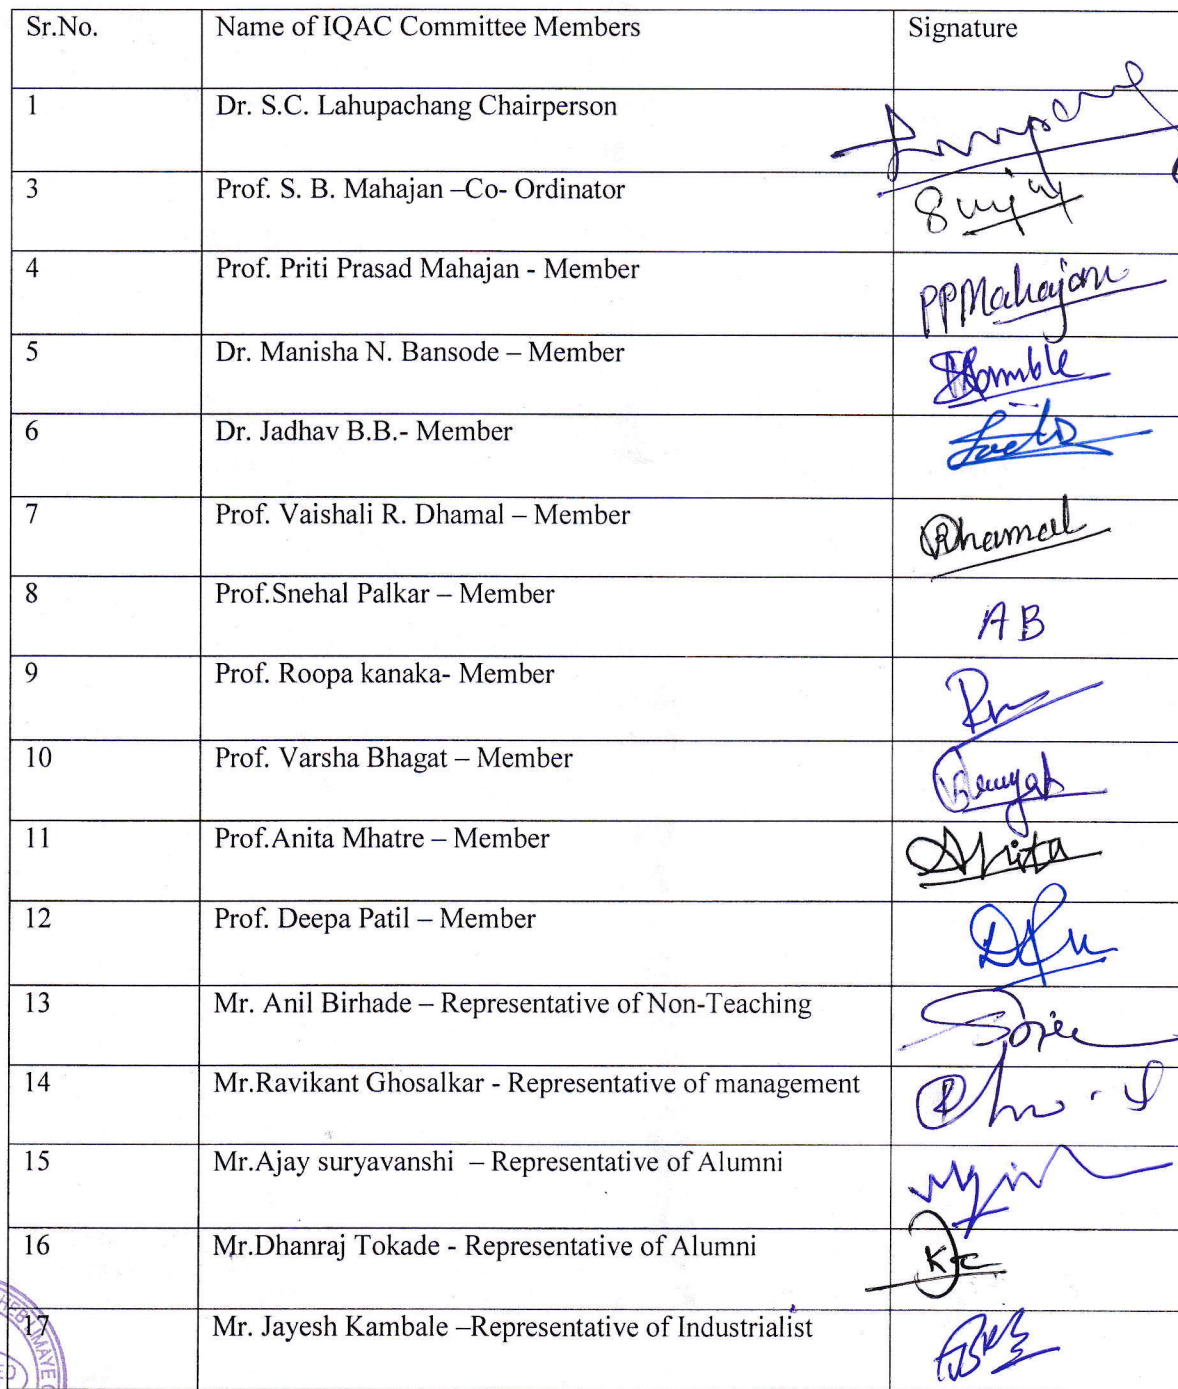 Sr.No. Name of IQAC Committee Members Signature
1 Dr. S.C. Lahupachang Chairperson
3 Prof. S. B. Mahajan –Co- Ordinator
4 Prof. Priti Prasad Mahajan - Member PPMahajan
5 Dr. Manisha N. Bansode – Member
6 Dr. Jadhav B.B.- Member
7 Prof. Vaishali R. Dhamal – Member Dhamal
8 Prof.Snehal Palkar – Member AB
9 Prof. Roopa kanaka- Member
10 Prof. Varsha Bhagat – Member
11 Prof.Anita Mhatre – Member Anita
12 Prof. Deepa Patil – Member
13 Mr. Anil Birhade – Representative of Non-Teaching
14 Mr.Ravikant Ghosalkar - Representative of management
15 Mr.Ajay suryavanshi – Representative of Alumni
16 Mr.Dhanraj Tokade - Representative of Alumni
17 Mr. Jayesh Kambale –Representative of Industrialist